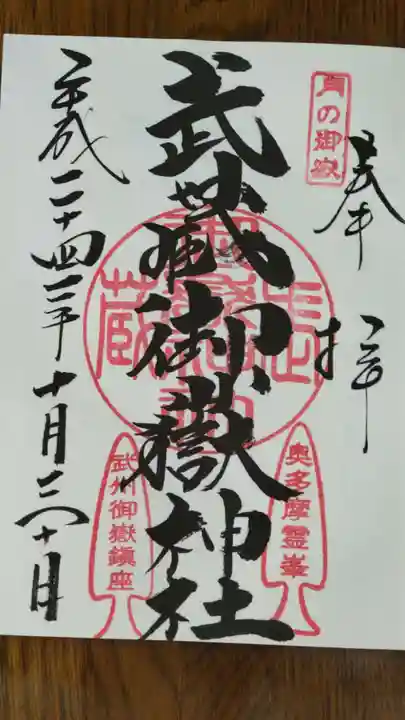 奉拝
月の御嶽
武蔵御嶽神社
奥多摩霊峯
武州御嶽鎮座
平成二十四年十月三十日